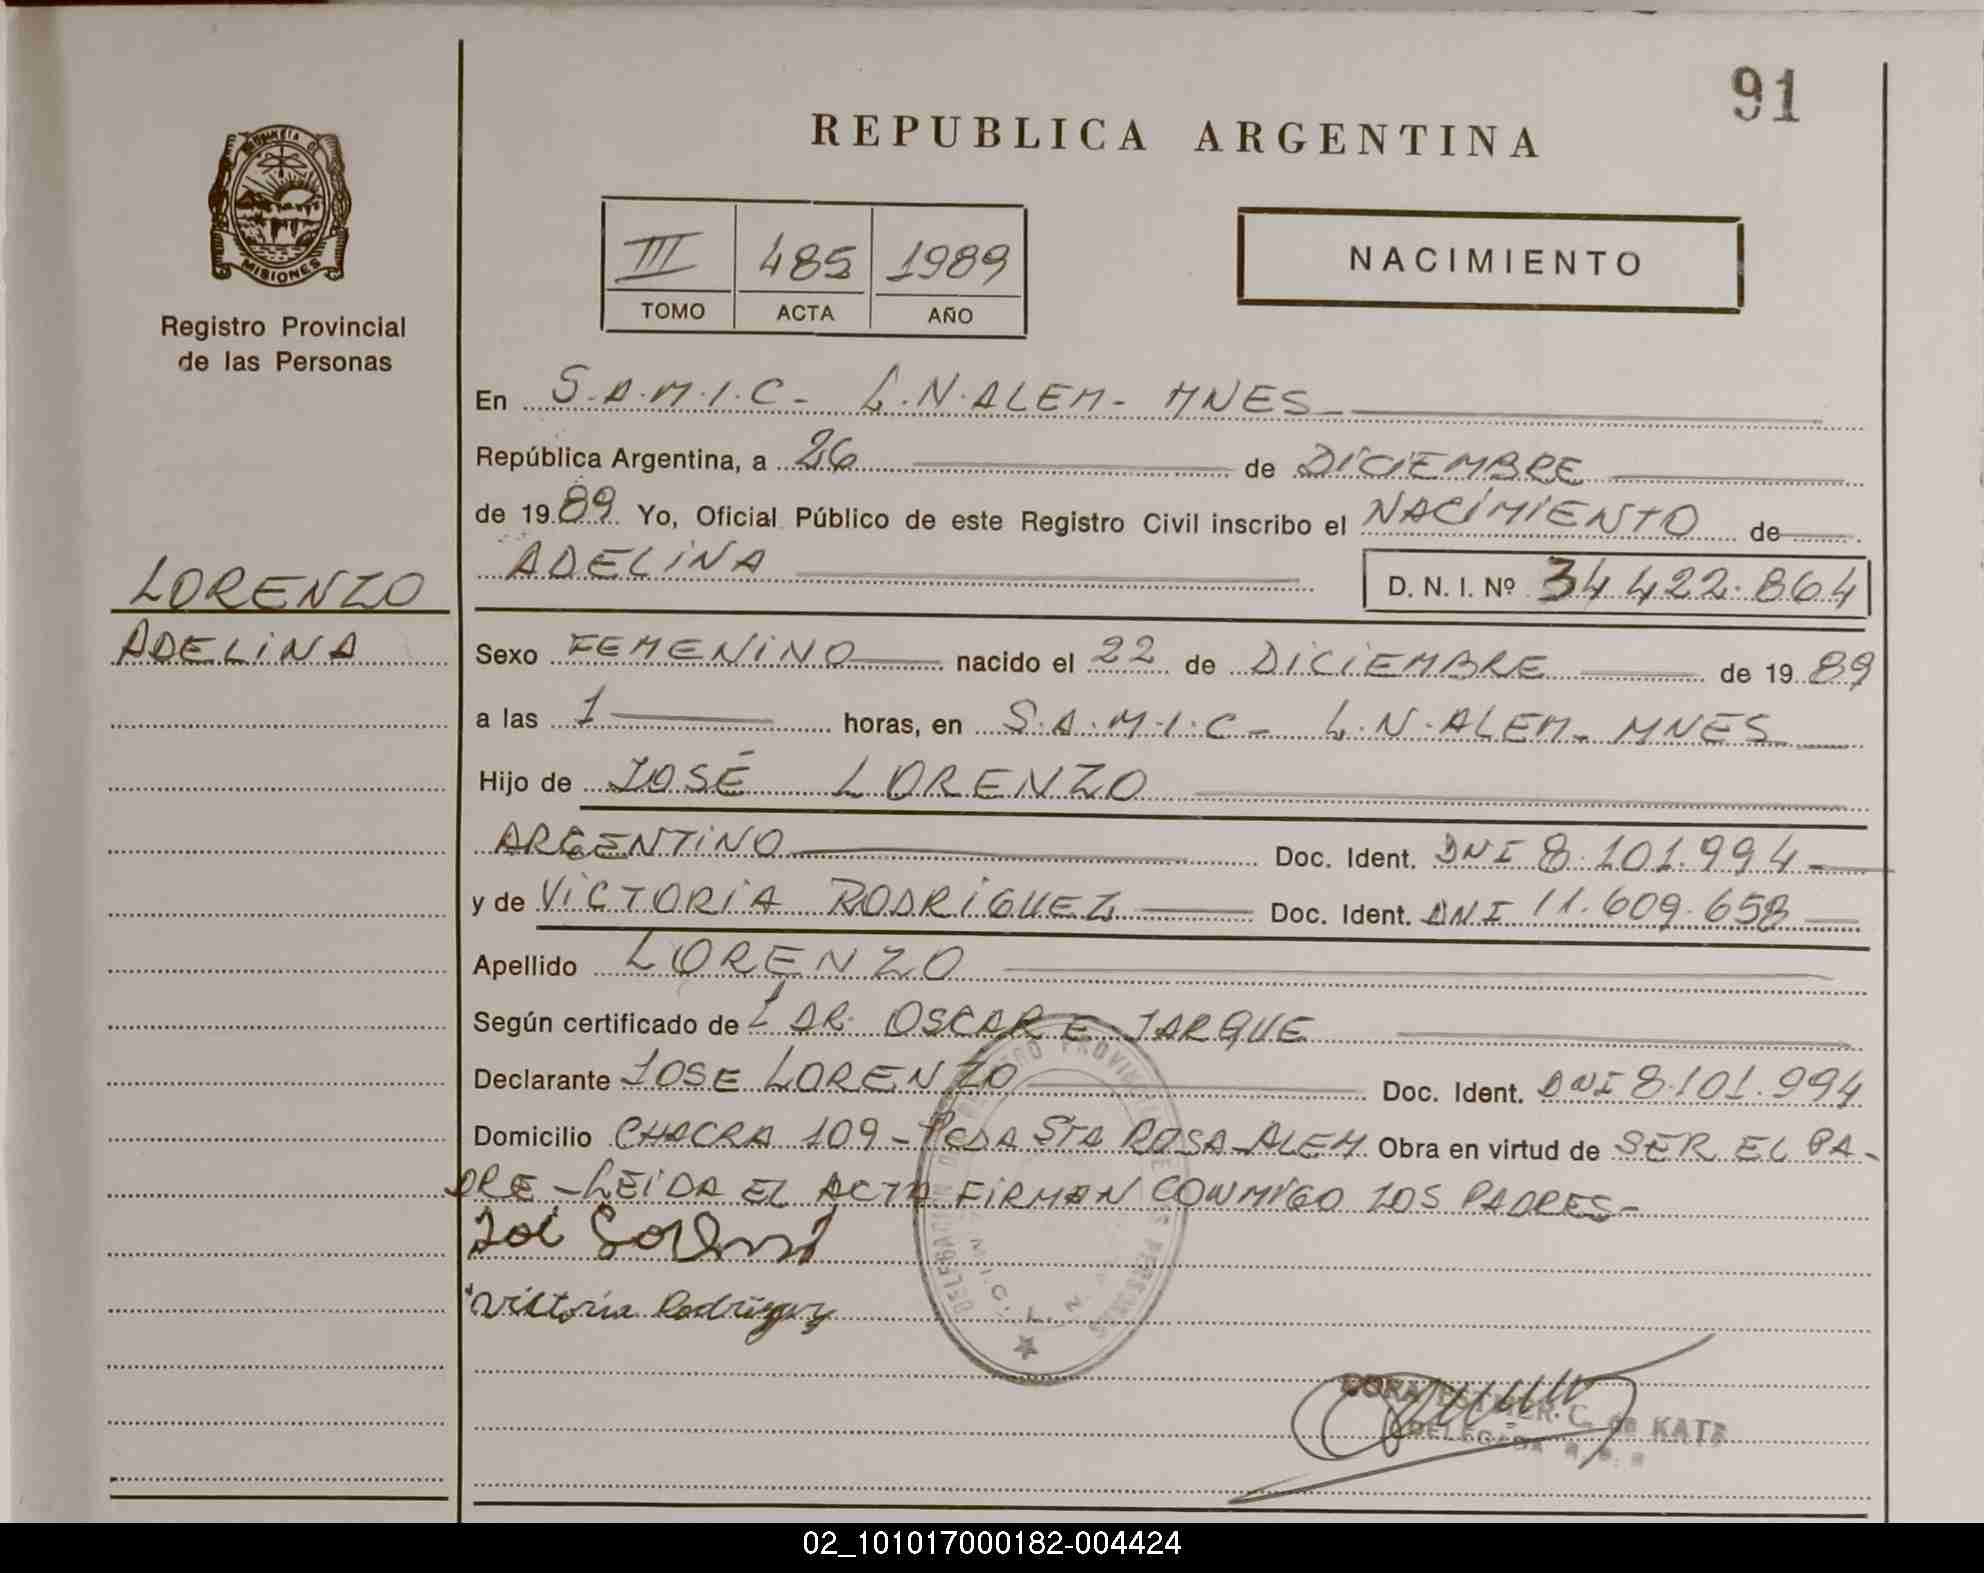 91
REPUBLICA ARGENTINA
MISIONES
Registro Provincial
de las Personas
III 485 1989
TOMO ACTA AÑO
NACIMIENTO
En S.A.M.I.C- L.N.ALEM- MNES
República Argentina, a 26 de DICIEMBRE
de 1989 Yo, Oficial Público de este Registro Civil inscribo el NACIMIENTO de
ADELINA D. N. I. Nº 34 422.864
LORENZO
ADELINA
Sexo FEMENINO nacido el 22 de DICIEMBRE de 1989
a las 1 horas, en S.A.M.I.C- L.N.ALEM- MNES
Hijo de JOSÉ LORENZO
ARGENTINO Doc. Ident. DNI 8.101.994
y de VICTORIA RODRIGUEZ Doc. Ident. DNI 11.609.658
Apellido LORENZO
Según certificado de DR. OSCAR E JARQUE
Declarante JOSE LORENZO Doc. Ident. DNI 8.101.994
Domicilio CHACRA 109 - PCDA STA ROSA - ALEM Obra en virtud de SER EL PA-
DRE - LEIDA EL ACTA FIRMAN CONMIGO LOS PADRES-
Victoria Rodriguez
C. de KATZ
DELEGADA
02_101017000182-004424